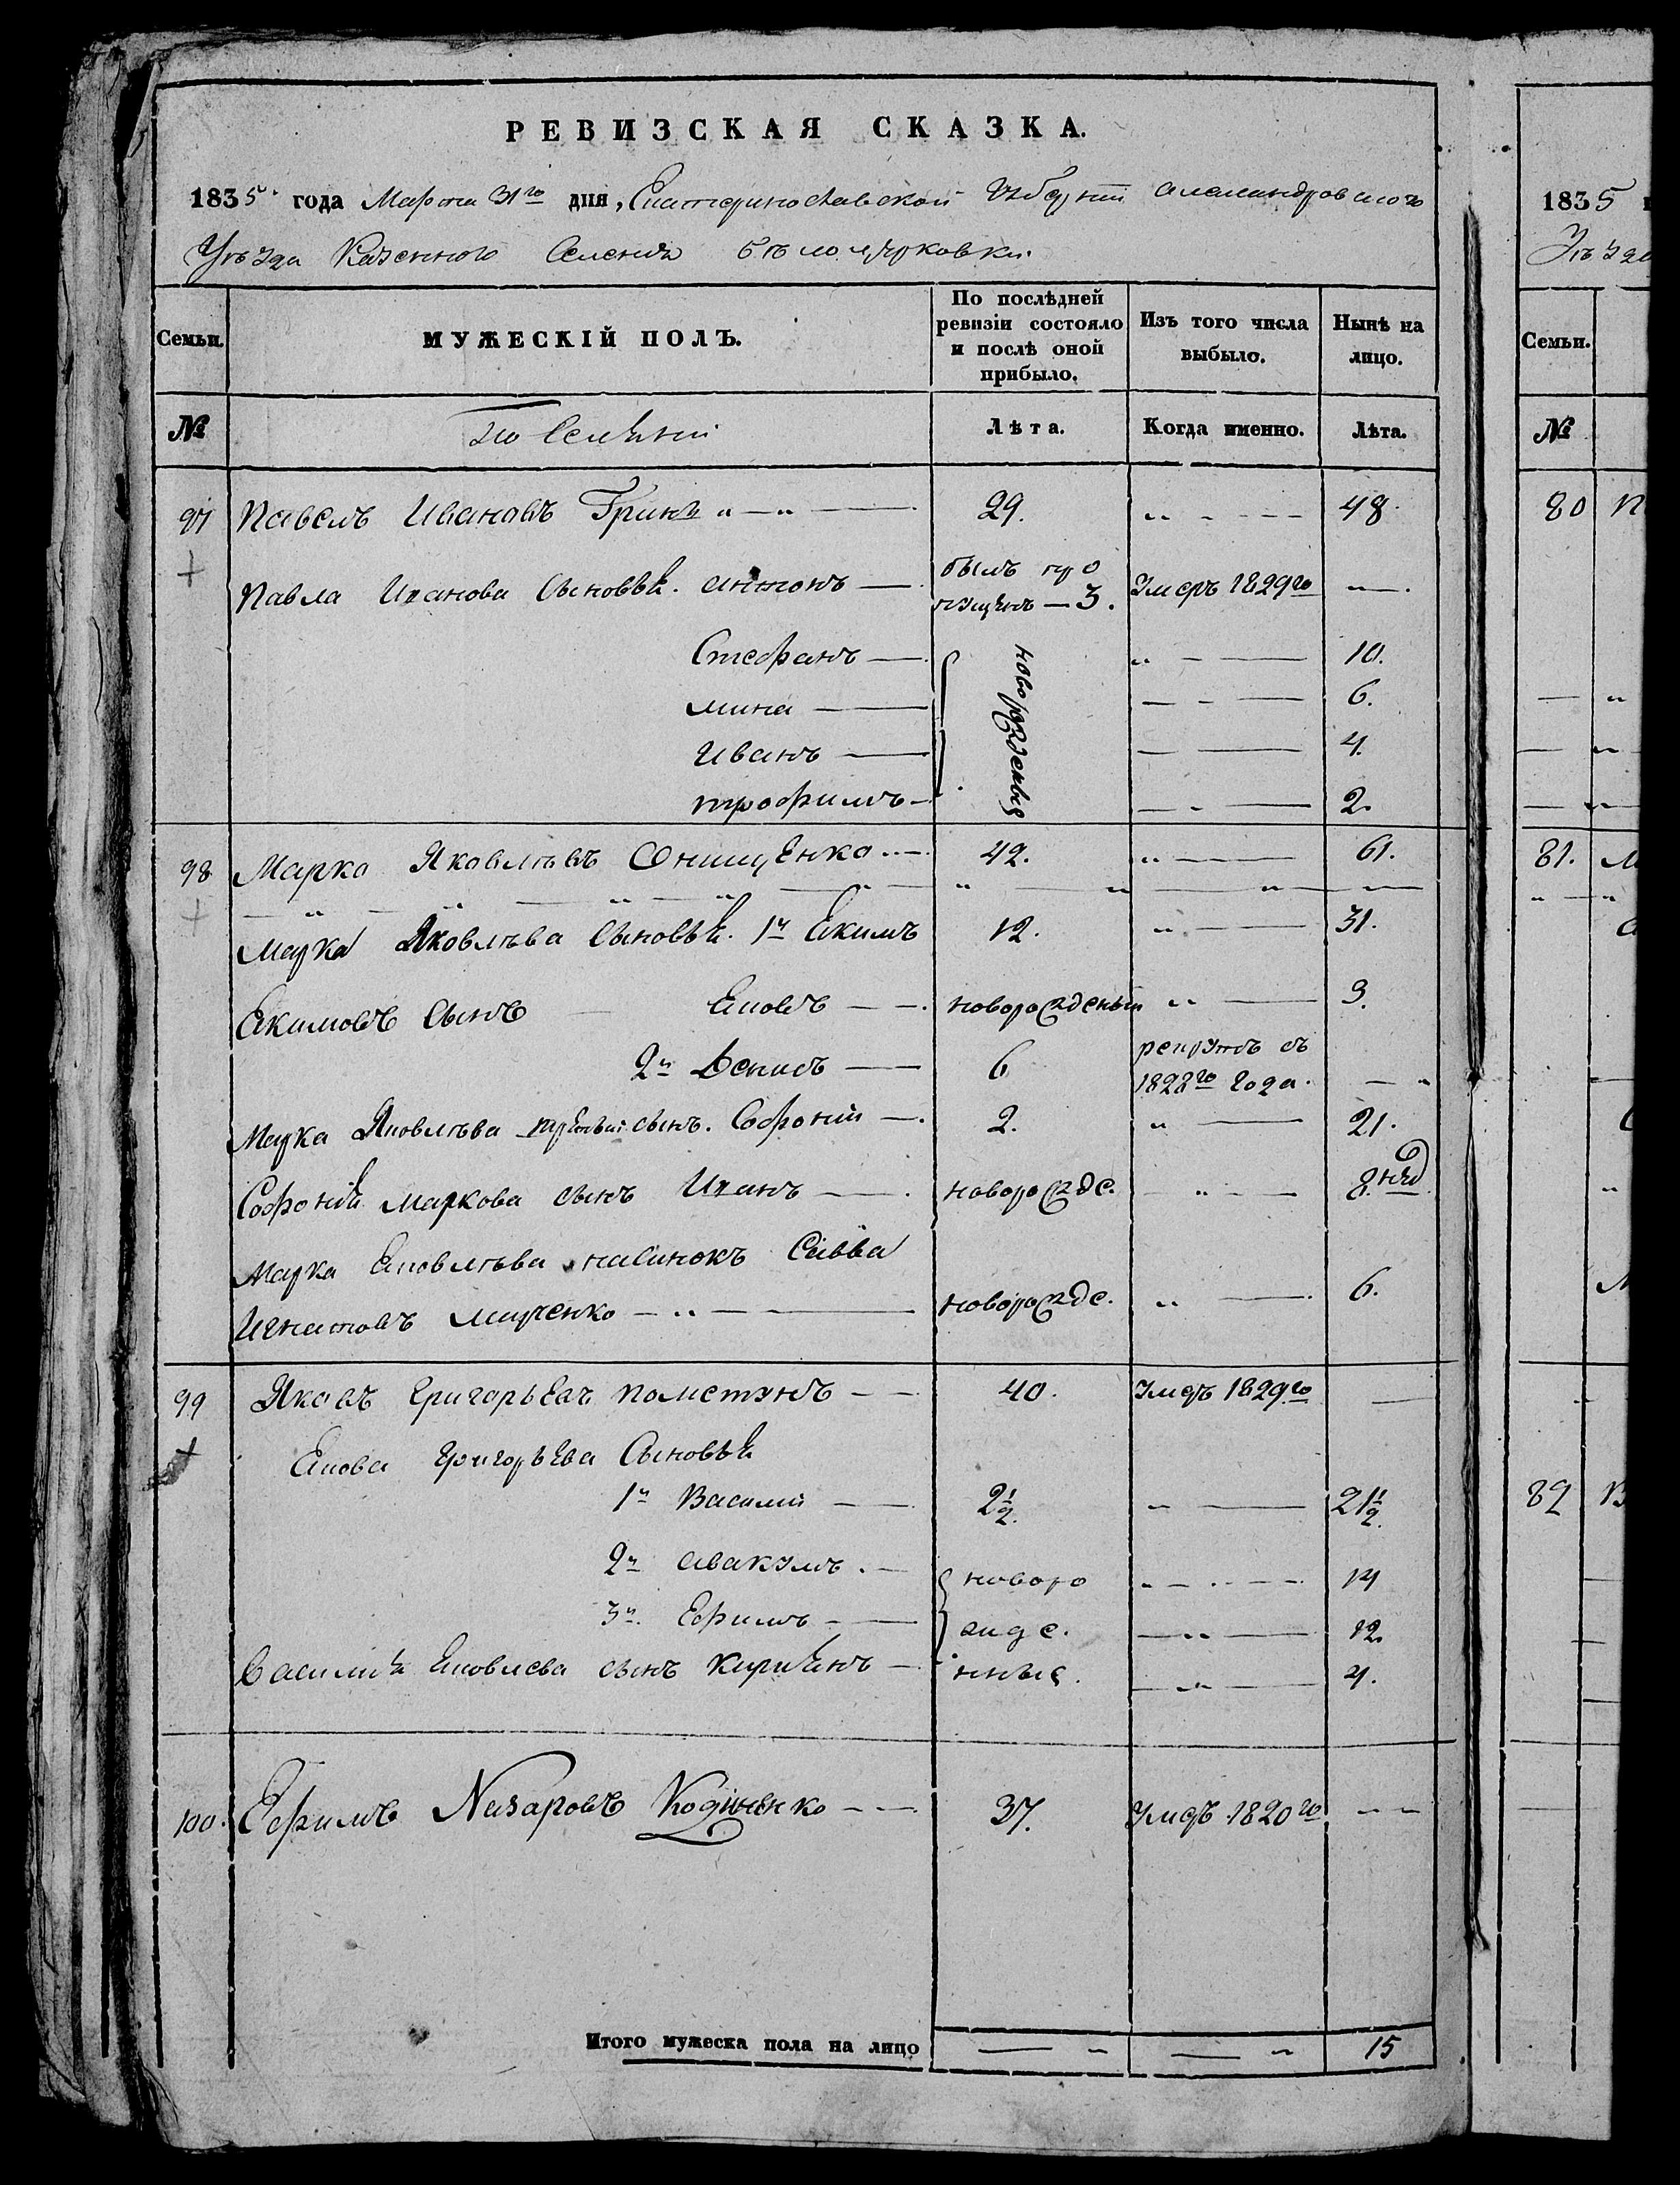 РЕВИЗСКАЯ СКАЗКА.
1835. года Марта 31го дня, Екатеринославской Губерніи Александровского
Уѣзда Казенного Селенія Бѣлоцерковки.
Семьи.
МУЖЕСКІЙ ПОЛЪ.
По послѣдней ревизіи состояло и послѣ оной прибыло.
Изъ того числа выбыло.
Нынѣ на лицо.
№
Лѣта.
Когда именно.
Лѣта.
97 Павелъ Ивановъ Гринь 29. 48.
Павла Иванова Сыновья. Антонъ былъ про
пущенъ — 3. Умеръ 1829го
Стефанъ 10.
новорожденыя
Мина 6.
Иванъ 4.
Трофимъ 2.
98 Марко Яковлѣвъ Онищенко 42. 61.
Марка Яковлѣва Сыновья. 1й Екимъ 12. 31.
Екимовъ Сынъ Яковъ новорожденый 3.
2й Денисъ 6 рекрутъ съ
1828го года.
Марка Яковлѣва третьий сынъ. Софроній 2. 21.
Софронія Маркова сынъ Иванъ новорожде. 8. нед
Марка Яковлѣва пасинокъ Савва
Игнатовъ Марченко новорожде. 6.
99 Яковъ Григорьевъ Полетунъ 40. Умеръ 1829го
Якова Григорьева Сыновья
1й Василий 2 1/2. 21 1/2.
2й Авакумъ новоро 14
3й. Ефимъ жде. 12
Василия Яковлева сынъ Кирияиъ нные. 4.
100. Ефимъ Назаровъ Кодиненко 37. Умеръ 1820го
Итого мужеска пола на лицо 15
1835
Семьи.
№
80
81.
82